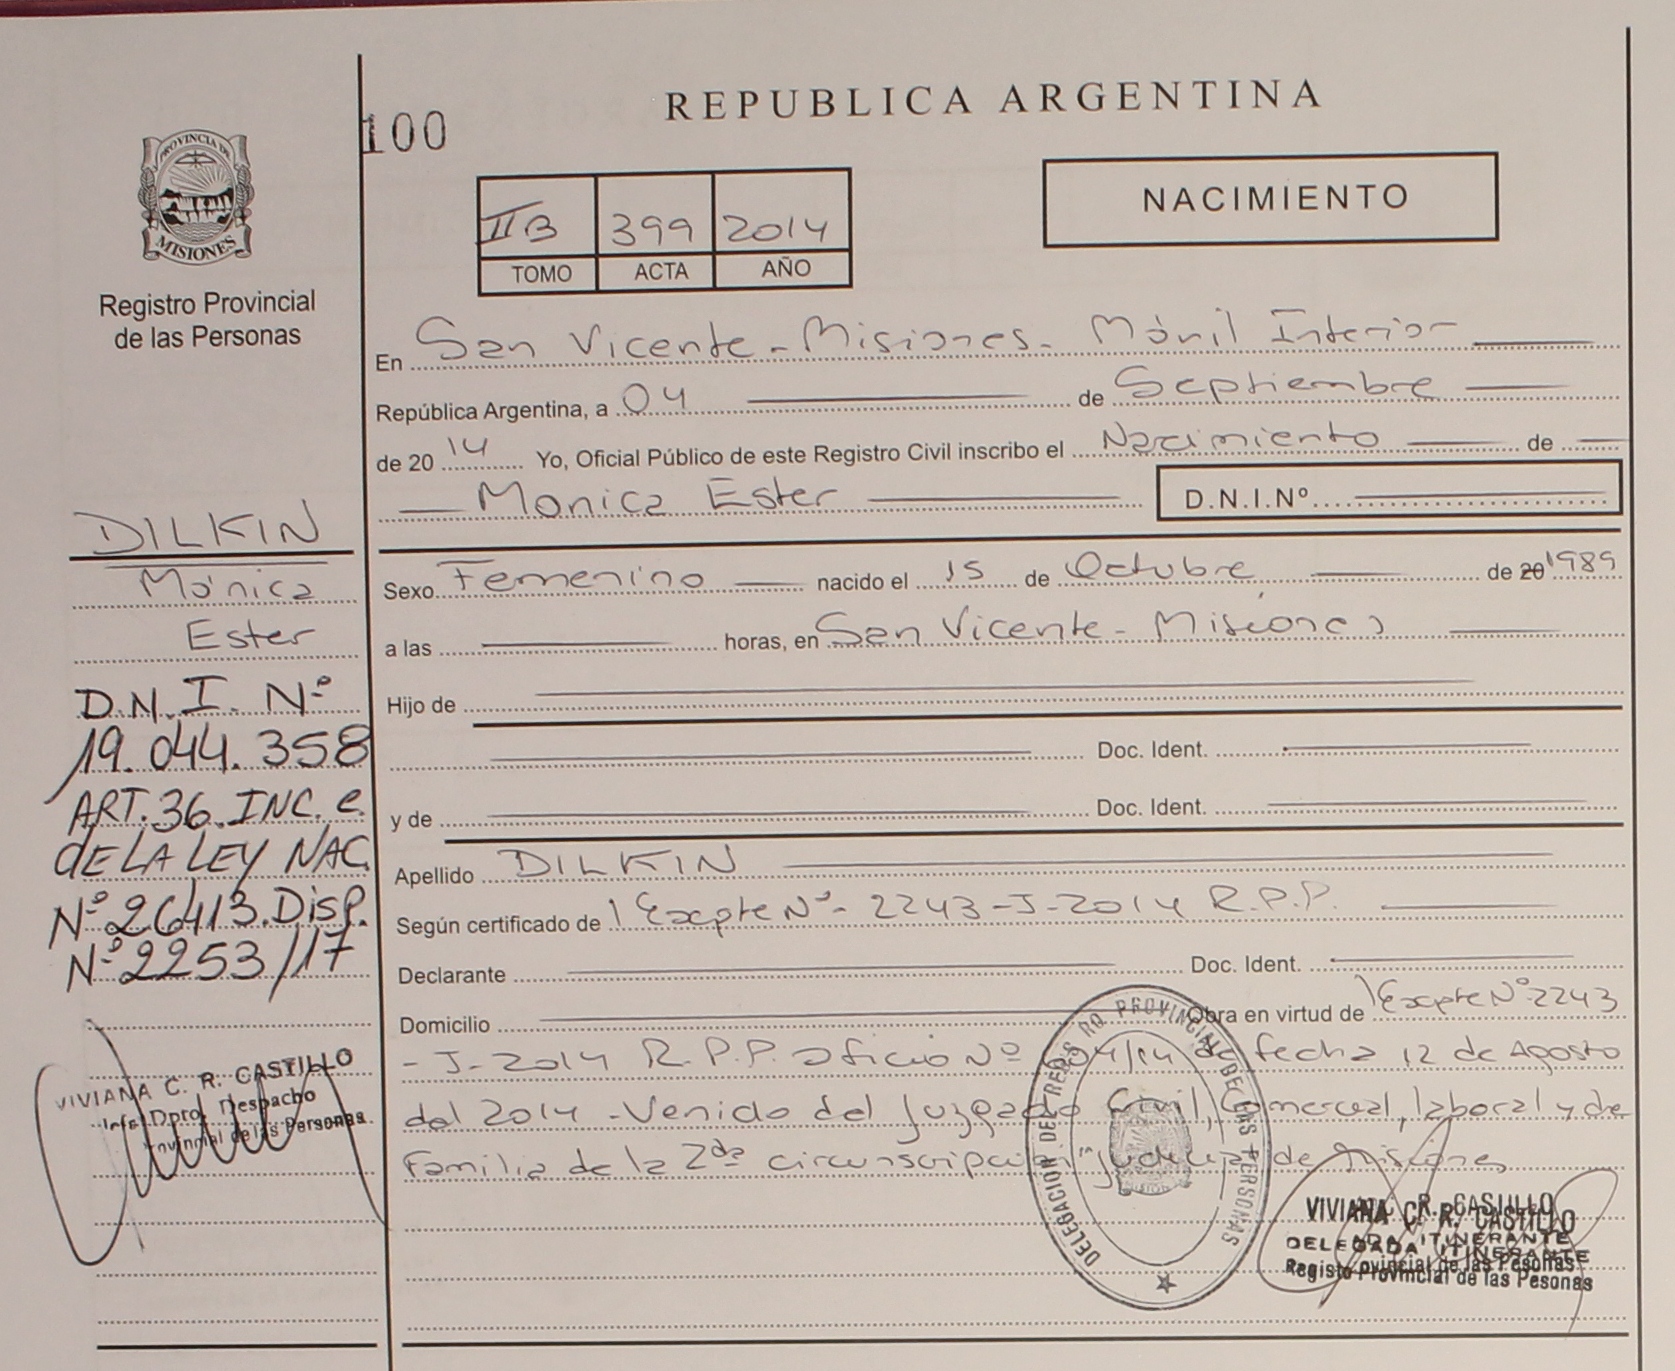 100
REPUBLICA ARGENTINA
PROVINCIA DE
MISIONES
Registro Provincial
de las Personas
II B 399 2014
TOMO ACTA AÑO
NACIMIENTO
En San Vicente - Misiones - Móvil Interior
República Argentina, a 04 de Septiembre
de 20 14 Yo, Oficial Público de este Registro Civil inscribo el Nacimiento de
Monica Ester D.N.I.Nº
Sexo Femenino nacido el 15 de Octubre de 20 1989
a las horas, en San Vicente - Misiones
Hijo de
Doc. Ident.
y de Doc. Ident.
Apellido DILKIN
Según certificado de 1 Expte Nº - 2243-J-2014 R.P.P.
Declarante Doc. Ident.
Domicilio Obra en virtud de 1 Expte Nº 2243
- J - 2014 R.P.P. oficio Nº 604/14 de fecha 12 de Agosto
del 2014 - Venido del Juzgado Civil, Comercial, laboral y de
Familia de la 2da circunscripción judicial de Misiones
DILKIN
Mónica
Ester
D.N.I. Nº
19.044.358
ART.36.INC.e.
dE LA LEY NAC.
Nº 26413.Disp.
Nº 2253/17
VIVIANA C. R. CASTILLO
Dpro. Despacho
Provincial de las Personas
DELEGACION DE REG. PROVINCIAL DE LAS PERSONAS
VIVIANA C. R. CASTILLO
DELEGADA ITINERANTE
Registo Provincial de las Pesonas